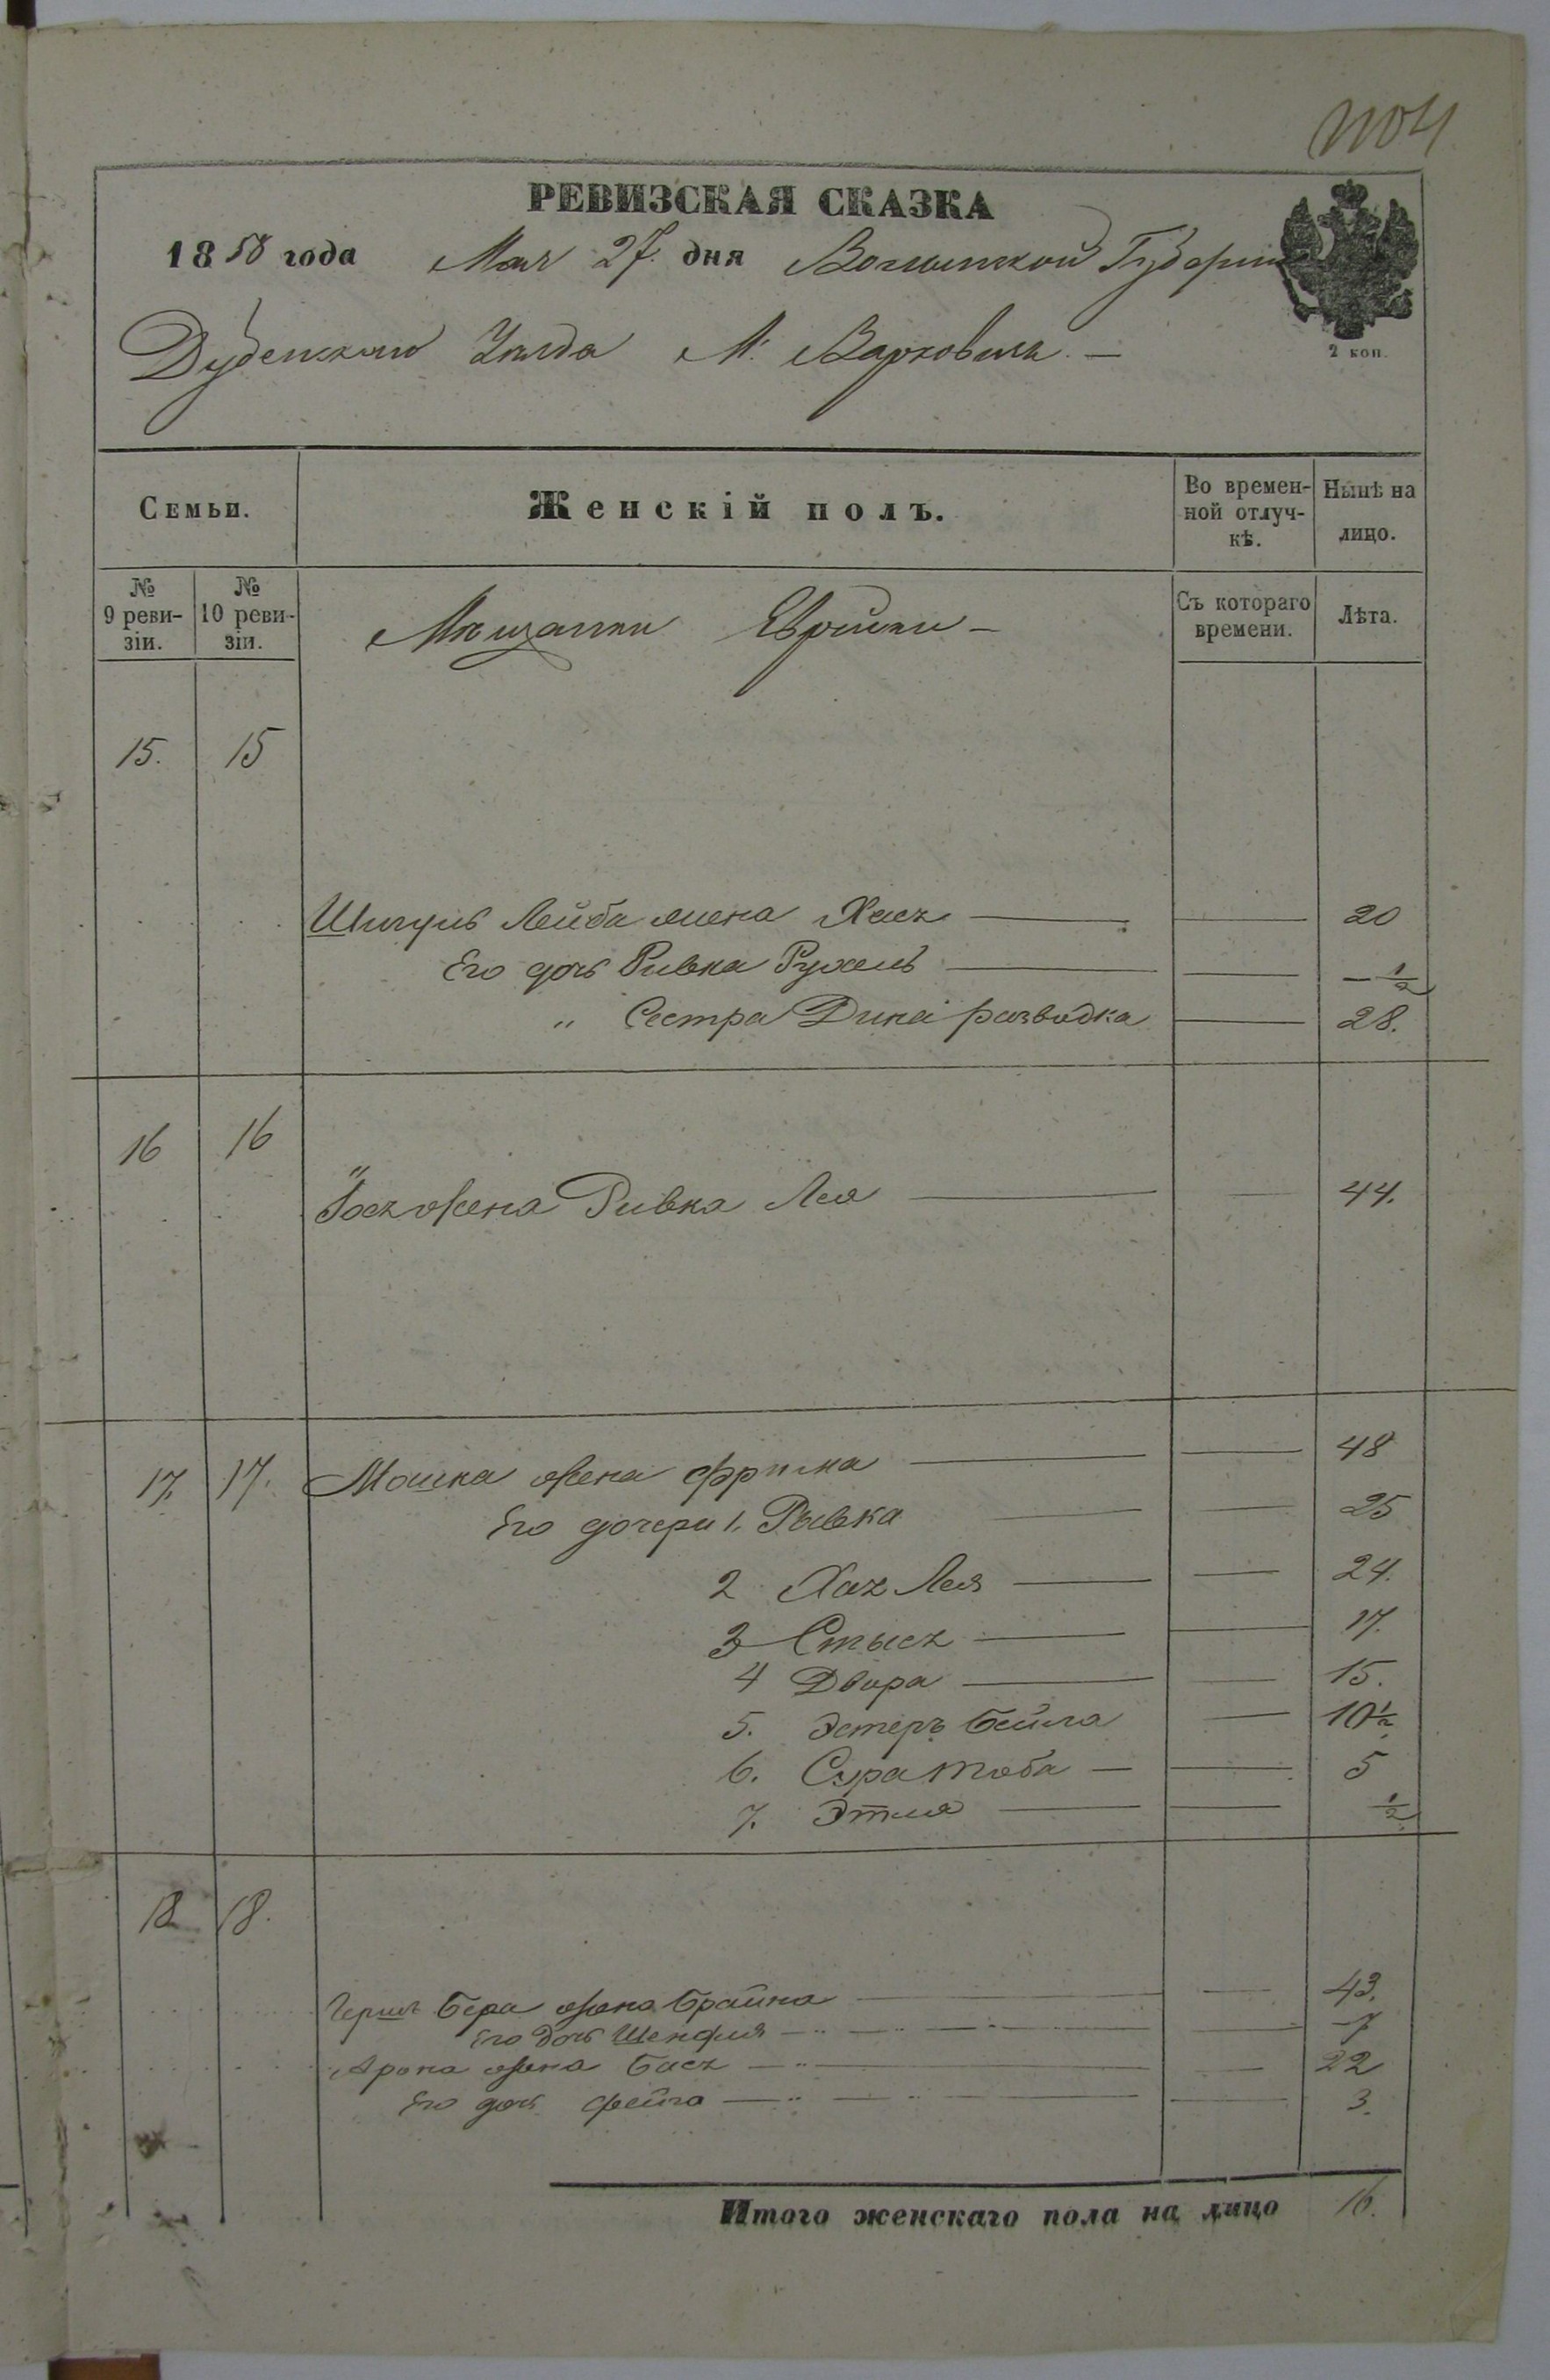 1104
РЕВИЗСКАЯ СКАЗКА
1858 года Мая 27. дня Волынской Губерніи
Дубенскаго Уѣзда М. Варковичъ —
2 коп.
Семьи.
Женскій полъ.
Во времен-
ной отлуч-
кѣ.
Нынѣ на
лицо.
№
9 реви-
зіи.
№
10 реви-
зіи.
Мѣщанки Еврейки —
Съ котораго
времени.
Лѣта.
15. 15
Лейба жена Хася — — 20
Его дочь Ривка Рухель — — — 1/2
„ Сестра Дина разводка — 28.
16 16
жена Ривка Лея — — 44.
17. 17. Мошка жена — — 48
Его дочери 1. Рывка — — 25
2 Хая Лея — — 24.
3 Стыся — — 17.
4 Двора — — 15.
5. Эстеръ Бейла — 10 1/2
6. Сура Тоба — — 5
7. Этля — — 1/2
18 18.
Бера жена Брайна — — 43.
Его дочь Шендля — — 7
Арона жена Бася — — 22
Его дочь Фейга — — 3.
Итого женскаго пола на лицо 16.